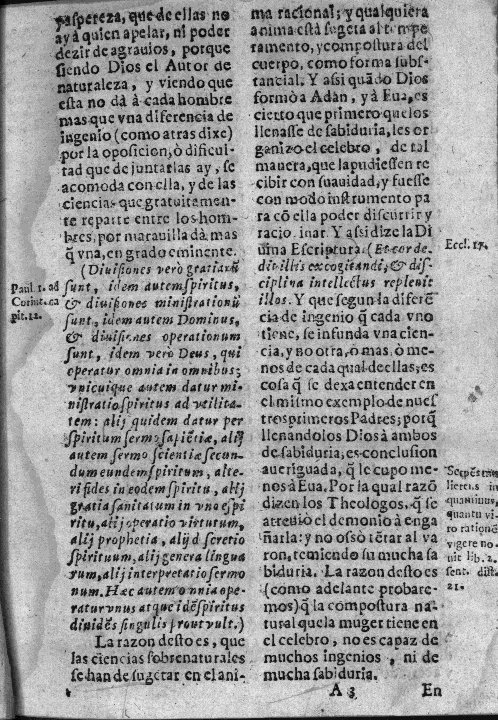 y aspereza, que de ellas no
ay á quien apelar, ni poder
dezir de agrauios, porque
siendo Dios el Autor de
naturaleza, y viendo que
esta no dà à cada hombre
mas que vna diferencia de
ingenio (como atras dixe)
por la oposicion, ò dificul-
tad que de juntarlas ay, se
acomoda con ella, y de las
ciencias que gratuitamen-
te reparte entre los hom-
bres, por marauilla dà mas
q̃ vna, en grado eminente.
(Diuisiones verò gratiarũ
Paul. 1. ad
Corint. ca
pit. 12.
sunt, idem autem spiritus,
& diuisiones ministrationũ
sunt, idem autem Dominus,
& diuisiones operationum
sunt, idem verò Deus, qui
operatur omnia in omnibus;
vnicuique autem datur mi-
nistratio spiritus ad vtilita-
tem: alij quidem datur per
spiritum sermo sapiẽtiæ, alij
autem sermo scientiæ secun-
dum eundem spiritum, alte-
ri fides in eodem spiritu, alij
gratia sanitatum in vno spi
ritu, alij operatio virtutum,
alij prophetia, alij discretio
spirituum, alij genera lingua
rum, alij interpretatio sermo
num. Hæc autem omnia ope-
ratur vnus atque idẽ spiritus
diuidẽs singulis prout vult.)
La razon desto es, que
las ciencias sobrenaturales
se han de sugetar en el ani-
ma racional; y qualquiera
anima està sugeta al tempe
ramento, y compostura del
cuerpo, como forma subs-
tancial. Y assi quãdo Dios
formò a Adàn, y à Eua, es
cierto que primero que los
llenasse de sabiduria, les or
ganizo el celebro, de tal
manera, que la pudiessen re
cibir con suauidad, y fuesse
con modo instrumento pa
ra cõ ella poder discurrir y
racio inar. Y assi dize la Di
uina Escriptura. (Et cor de-
Eccl. 17.
dit illis excogitandi, & dis-
ciplina intellectus repleuit
illos. Y que segun la diferẽ
cia de ingenio q̃ cada vno
tiene, se infunda vna cien-
cia, y no otra, ò mas, ò me-
nos de cada qual de ellas; es
cosa q̃ se dexa entender en
el mismo exemplo de nues
tros primeros Padres; porq̃
llenandolos Dios à ambos
de sabiduria, es conclusion
aueriguada, q̃ le cupo me-
nos à Eua. Por la qual razõ
dizen los Theologos, q̃ se
atreuiò el demonio à enga
ñarla: y no ossò tẽtar al va
ron, temiendo su mucha sa
biduria. La razon desto es
(como adelante probare-
mos) q̃ la compostura na-
tural que la muger tiene en
el celebro, no es capaz de
muchos ingenios, ni de
mucha sabiduria.
lierens in
quantu vi-
ro rationẽ
vigere no-
uit lib. 2.
sent. dist.
21.
A 3 En